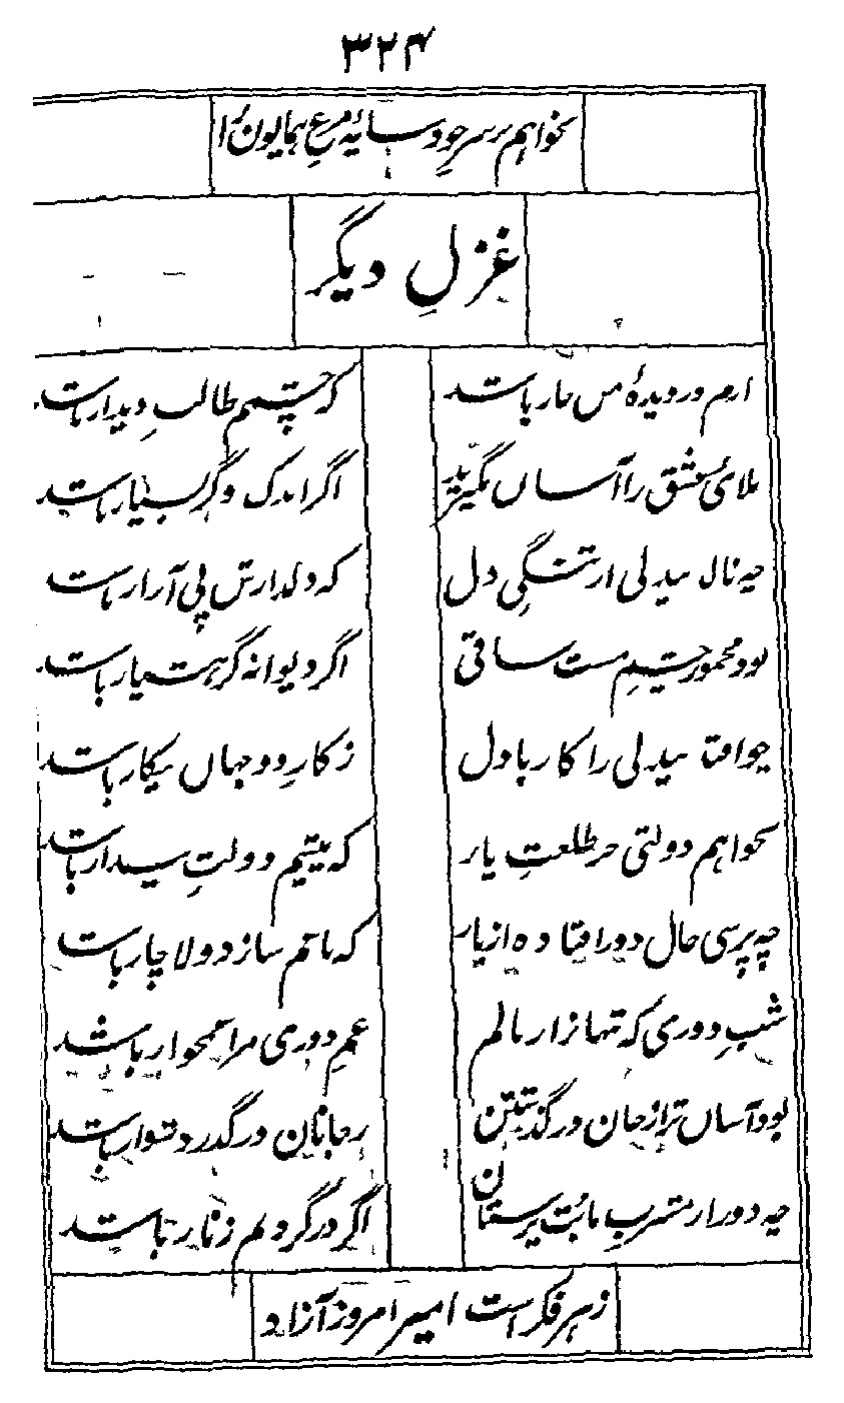 ۳۲۴
نخواهم بر سر خود سایهٔ مرغ همایون را
غزلِ دیگر
ازم در دیدهٔ من خار باشد
که چشمم طالبِ دیدار باشد
بلای عشق را آساں نگیرید
اگر اندک وگر بسیار باشد
چه نالد بیدلی از تنگیِ دل
که دلدارش پی آزار باشد
بود مخمور چشمِ مست ساقی
اگر دیوانه گر هشیار باشد
چو افتد بیدلی را کار بادل
ز کارِ دو جهاں بیکار باشد
نخواهم دولتی جز طلعتِ یار
که بینم دولتِ بیدار باشد
چه پرسی حال دور افتاده از یار
که با غم سازد و لاچار باشد
شبِ دوری که تنها زار نالم
غمِ دوری مرا غمخوار باشد
بود آساں ترا ز جان درگذشتن
ز جانان درگذر دشوار باشد
چه دور از مشربِ ما بُت پرستان
اگر در گردنم زنار باشد
ز هر فکر است امیر امروز آزاد